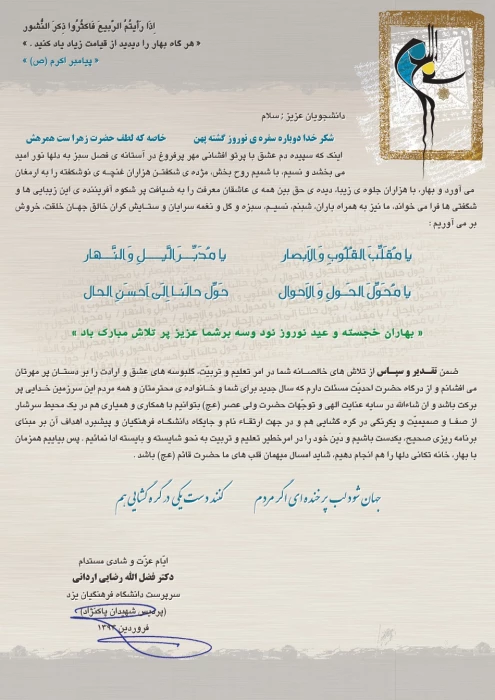 اِذَا رَاَیتُمُ الرَّبِیعَ فَاَکثِرُوا ذِکرَ النُّشُور
« هر گاه بهار را دیدید از قیامت زیاد یاد کنید . »
« پیامبر اکرم (ص) »
دانشجویان عزیز ; سلام
شکر خدا دوباره سفره ی نوروز گشته پهن خاصه که لطف حضرت زهرا ست همرهش
اینک که سپیده دم عشق با پرتو افشانی مهر پرفروغ در آستانه ی فصل سبز به دلها نور امید
می بخشد و نسیم، با شمیم روح بخش، مژده ی شکفتن هزاران غنچه ی نوشکفته را به ارمغان
می آورد و بهار، با هزاران جلوه ی زیبا، دیده ی حق بین همه ی عاشقان معرفت را به ضیافت پر شکوه آفریننده ی این زیبایی ها و
شگفتی ها فرا می خواند، ما نیز به همراه باران، شبنم، نسیم، سبزه و گل و نغمه سرایان و ستایش گران خالق جهان خلقت، خروش
بر می آوریم :
یا مُقَلِّبَ القُلُوبِ وَ الاَبصار یا مُدَبِّرَ اللَّیلِ وَ النَّهار
یا مُحَوِّلَ الحَولِ وَ الاَحوال حَوِّل حالَنا اِلی اَحسَنِ الحال
« بهاران خجسته و عید نوروز نود وسه برشما عزیز پر تلاش مبارک باد »
ضمن تقدیر و سپاس از تلاش های خالصانه شما در امر تعلیم و تربیّت، گلبوسه های عشق و ارادت را بر دستان پر مهرتان
می افشانم و از درگاه حضرت احدیّت مسئلت دارم که سال جدید برای شما و خانواده ی محترمتان و همه مردم این سرزمین خدایی پر
برکت باشد و ان شاءالله در سایه عنایت الهی و توجّهات حضرت ولی عصر (عج) بتوانیم با همکاری و همیاری هم در یک محیط سرشار
از صفا و صمیمیّت و یکرنگی در گره گشایی هم و در جهت ارتقاء نام و جایگاه دانشگاه فرهنگیان و پیشبرد اهداف آن بر مبنای
برنامه ریزی صحیح، یکدست باشیم و دَین خود را در امرخطیر تعلیم و تربیت به نحو شایسته و بایسته ادا نمائیم . پس بیاییم همزمان
با بهار، خانه تکانی دلها را هم انجام دهیم، شاید امسال میهمان قلب های ما حضرت قائم (عج) باشد .
جهان شود لب پر خنده ای اگر مردم کنند دست یکی در گره گشایی هم
ایّام عزّت و شادی مستدام
دکتر فضل الله رضایی اردانی
سرپرست دانشگاه فرهنگیان یزد
(پردیس شهیدان پاکنژاد)
فروردین ۱۳۹۳